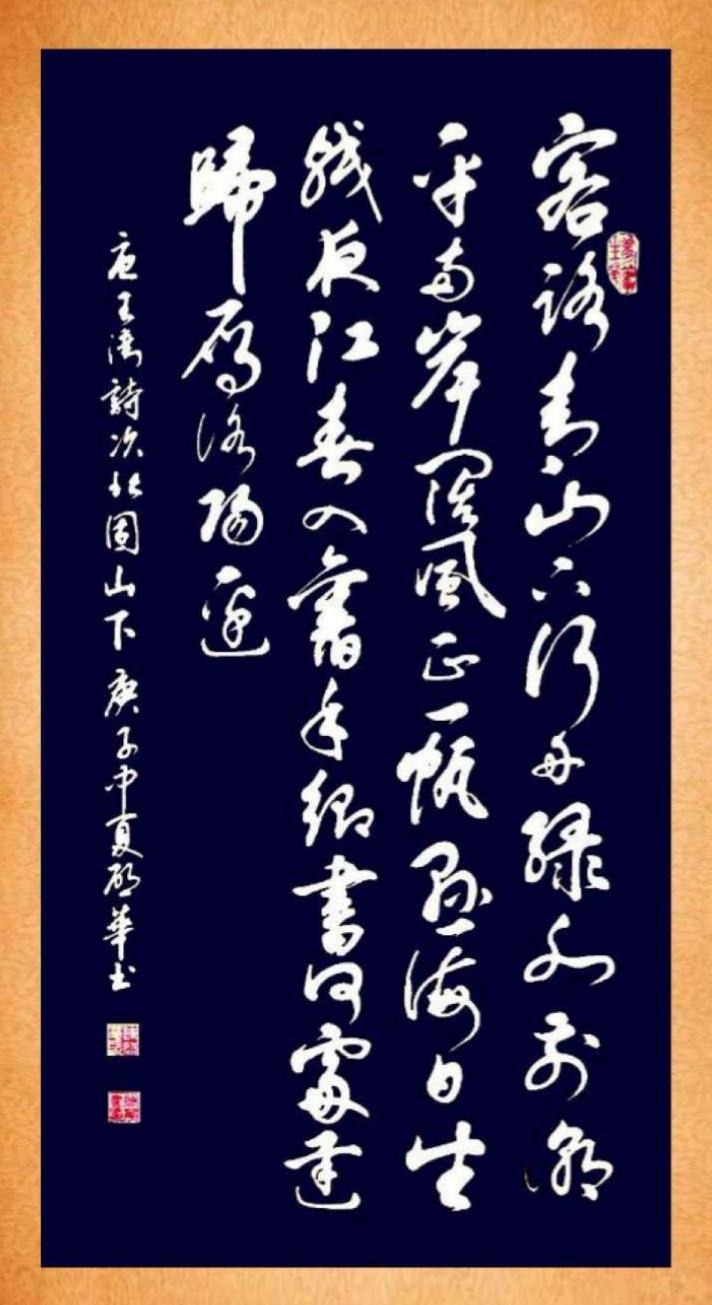 客路青山下行舟綠水前潮
平兩岸闊風正一帆懸海日生
殘夜江春入舊年鄉書何處達
歸雁洛陽邊
唐王灣詩次北固山下 庚子中夏華书